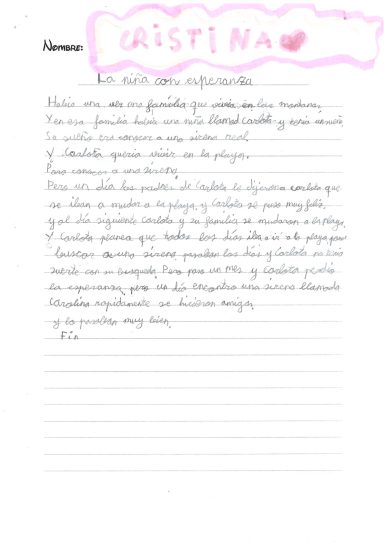 Nombre: CRISTINA
La niña con esperanza
Había una vez una familia que vivía en las montañas.
Y en esa familia había una niña llamad Carlota y tenía un sueño
Su sueño era conocer a una sirena real.
Y Carlota quería vivir en la playa.
Para conocer a una sirena.
Pero un día los padres de Carlota le dijeron a carlota que
se iban a mudar a la playa y Carlota se puso muy feliz.
y al día siguiente Carlota y su familia se mudaron a la playa.
Y Carlota planea que todos los días iba a ir a la playa para
buscar a una sirena pasaban los días y Carlota no tenia
suerte con su busqueda. Pero paso un mes y Carlota perdio
la esperanza, pero un día encontro una sirena llamada
Carolina rapidamente se hicieron amigas
y lo pasaban muy bien.
Fin